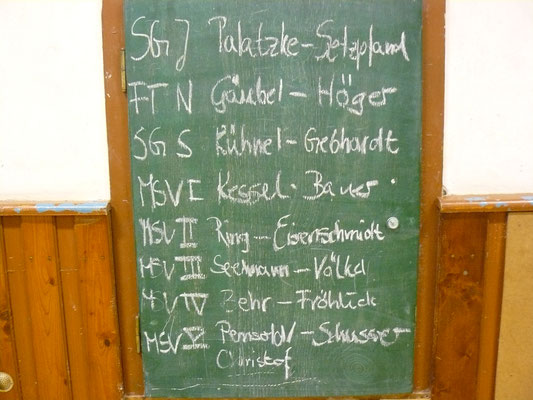 SG J Palatzke - Setzpfand
FT N Gäubel - Höger
SG S Kühnel - Gebhardt
MSV I Kessel - Bauer
MSV II Ring - Eisenschmidt
MSV III Seemann - Völkel
MSV IV Behr - Fröhlich
MSV V Pensold/ - Schusser
Christof